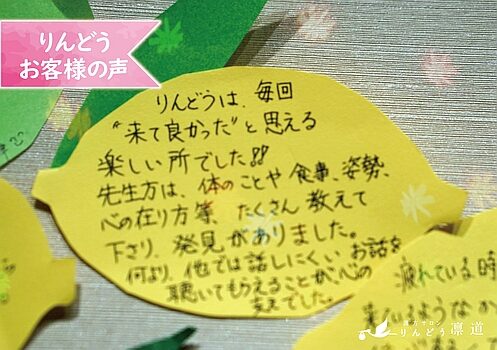 りんどう
お客様の声
りんどうは、毎回
"来て良かった"と思える
楽しい所でした!!
先生方は、体のことや食事、姿勢、
心の在り方等、たくさん教えて
下さり、発見がありました。
何より、他では話しにくいお話を
聴いてもらえることが心の
支えでした。
疲れている時
りんどう 凛道